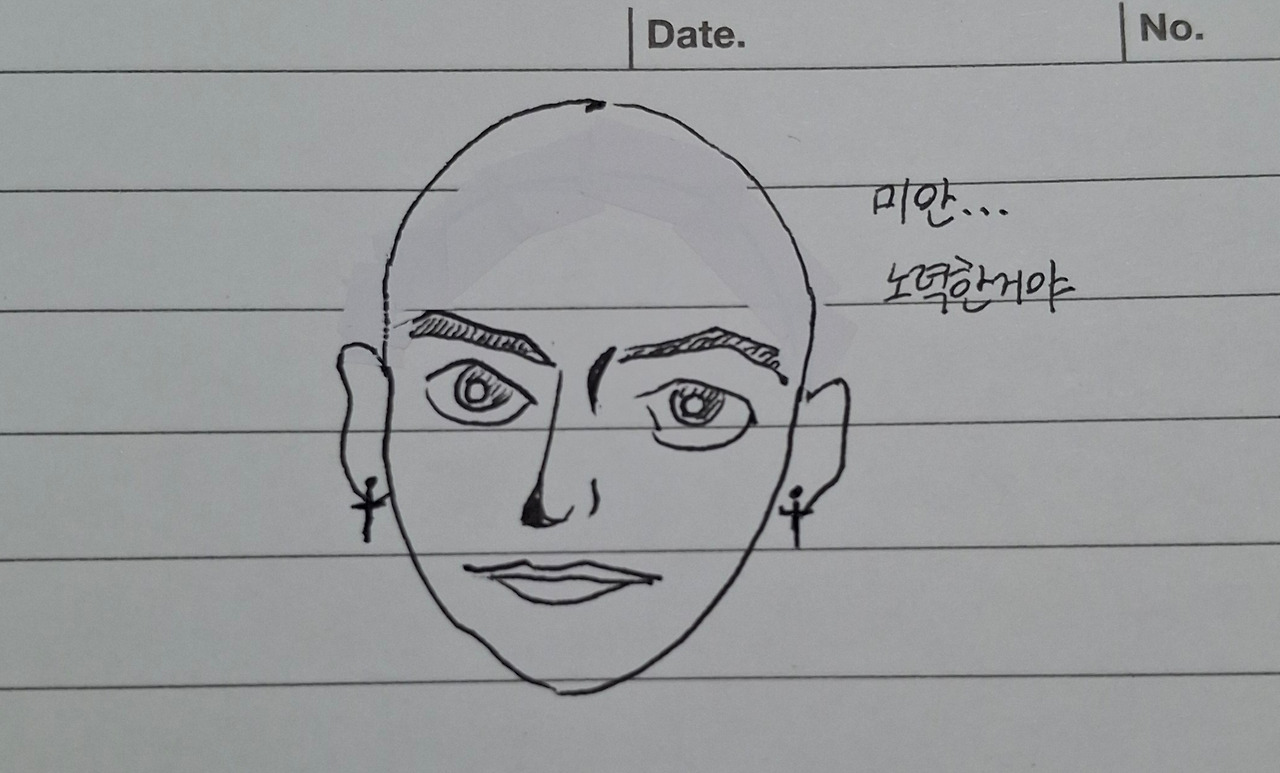 Date.
No.
미안...
노력한거야